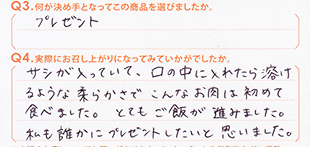 Q3.何が決め手となってこの商品を選びましたか。
プレゼント
Q4.実際にお召し上がりになってみていかがでしたか。
サシが入っていて、口の中に入れたら溶け
るような柔らかさでこんなお肉は初めて
食べました。とてもご飯が進みました。
私も誰かにプレゼントしたいと思いました。